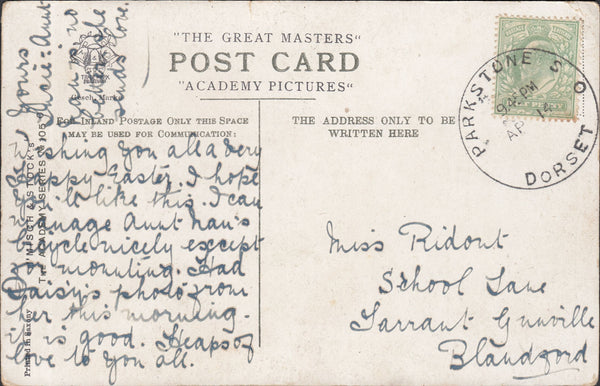 "THE GREAT MASTERS"
POST CARD
"ACADEMY PICTURES"
FOR INLAND POSTAGE ONLY THIS SPACE
MAY BE USED FOR COMMUNICATION:
THE ADDRESS ONLY TO BE
WRITTEN HERE
PARKSTONE S.O
9 45 PM
AP 14
DORSET
wishing you all a very
happy Easter. I hope
you'll like this. I can
manage Aunt Nan's
cycle nicely except
for mounting. Had
Daisy's photo from
her this morning.
it is good. Heaps of
love to you all.
Yours
Aunt
is no
better she
sends love.
Miss Ridout
School Lane
Tarrant Gunville
Blandford
Printed in Saxony
MISCH & STOCK'S